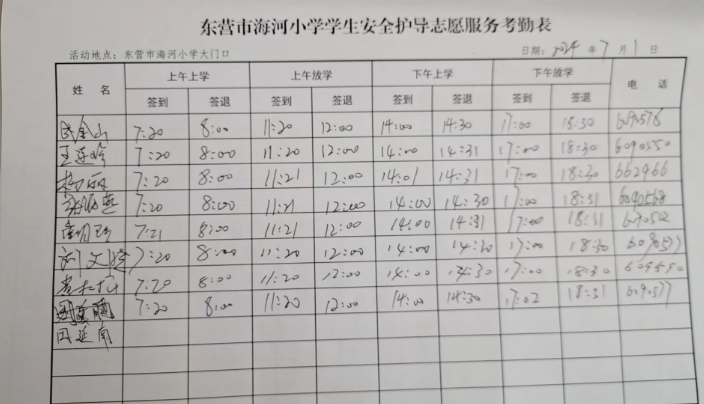 东营市海河小学学生安全护导志愿服务考勤表
活动地点：东营市海河小学大门口 日期：2024 年 7 月 1 日
姓 名 上午上学 上午放学 下午上学 下午放学 电 话
签到 签退 签到 签退 签到 签退 签到 签退
金山 7:20 8:00 11:20 12:00 14:00 14:30 17:00 18:30
王延 7:20 8:00 11:20 12:00 14:00 14:31 17:00 18:30 6090550
杨丽 7:20 8:00 11:21 12:00 14:01 14:31 17:00 18:30 662966
燕 7:20 8:00 11:21 12:00 14:00 14:30 17:00 18:31 6090568
7:21 8:00 11:21 12:00 14:00 14:31 17:00 18:31 6090502
刘文 7:20 8:00 11:20 12:00 14:00 14:30 17:00 18:30 6090577
7:20 8:00 11:20 12:00 14:00 14:30 17:00 18:30
7:20 8:00 11:20 12:00 14:00 14:30 17:02 18:31 6090577
田延南